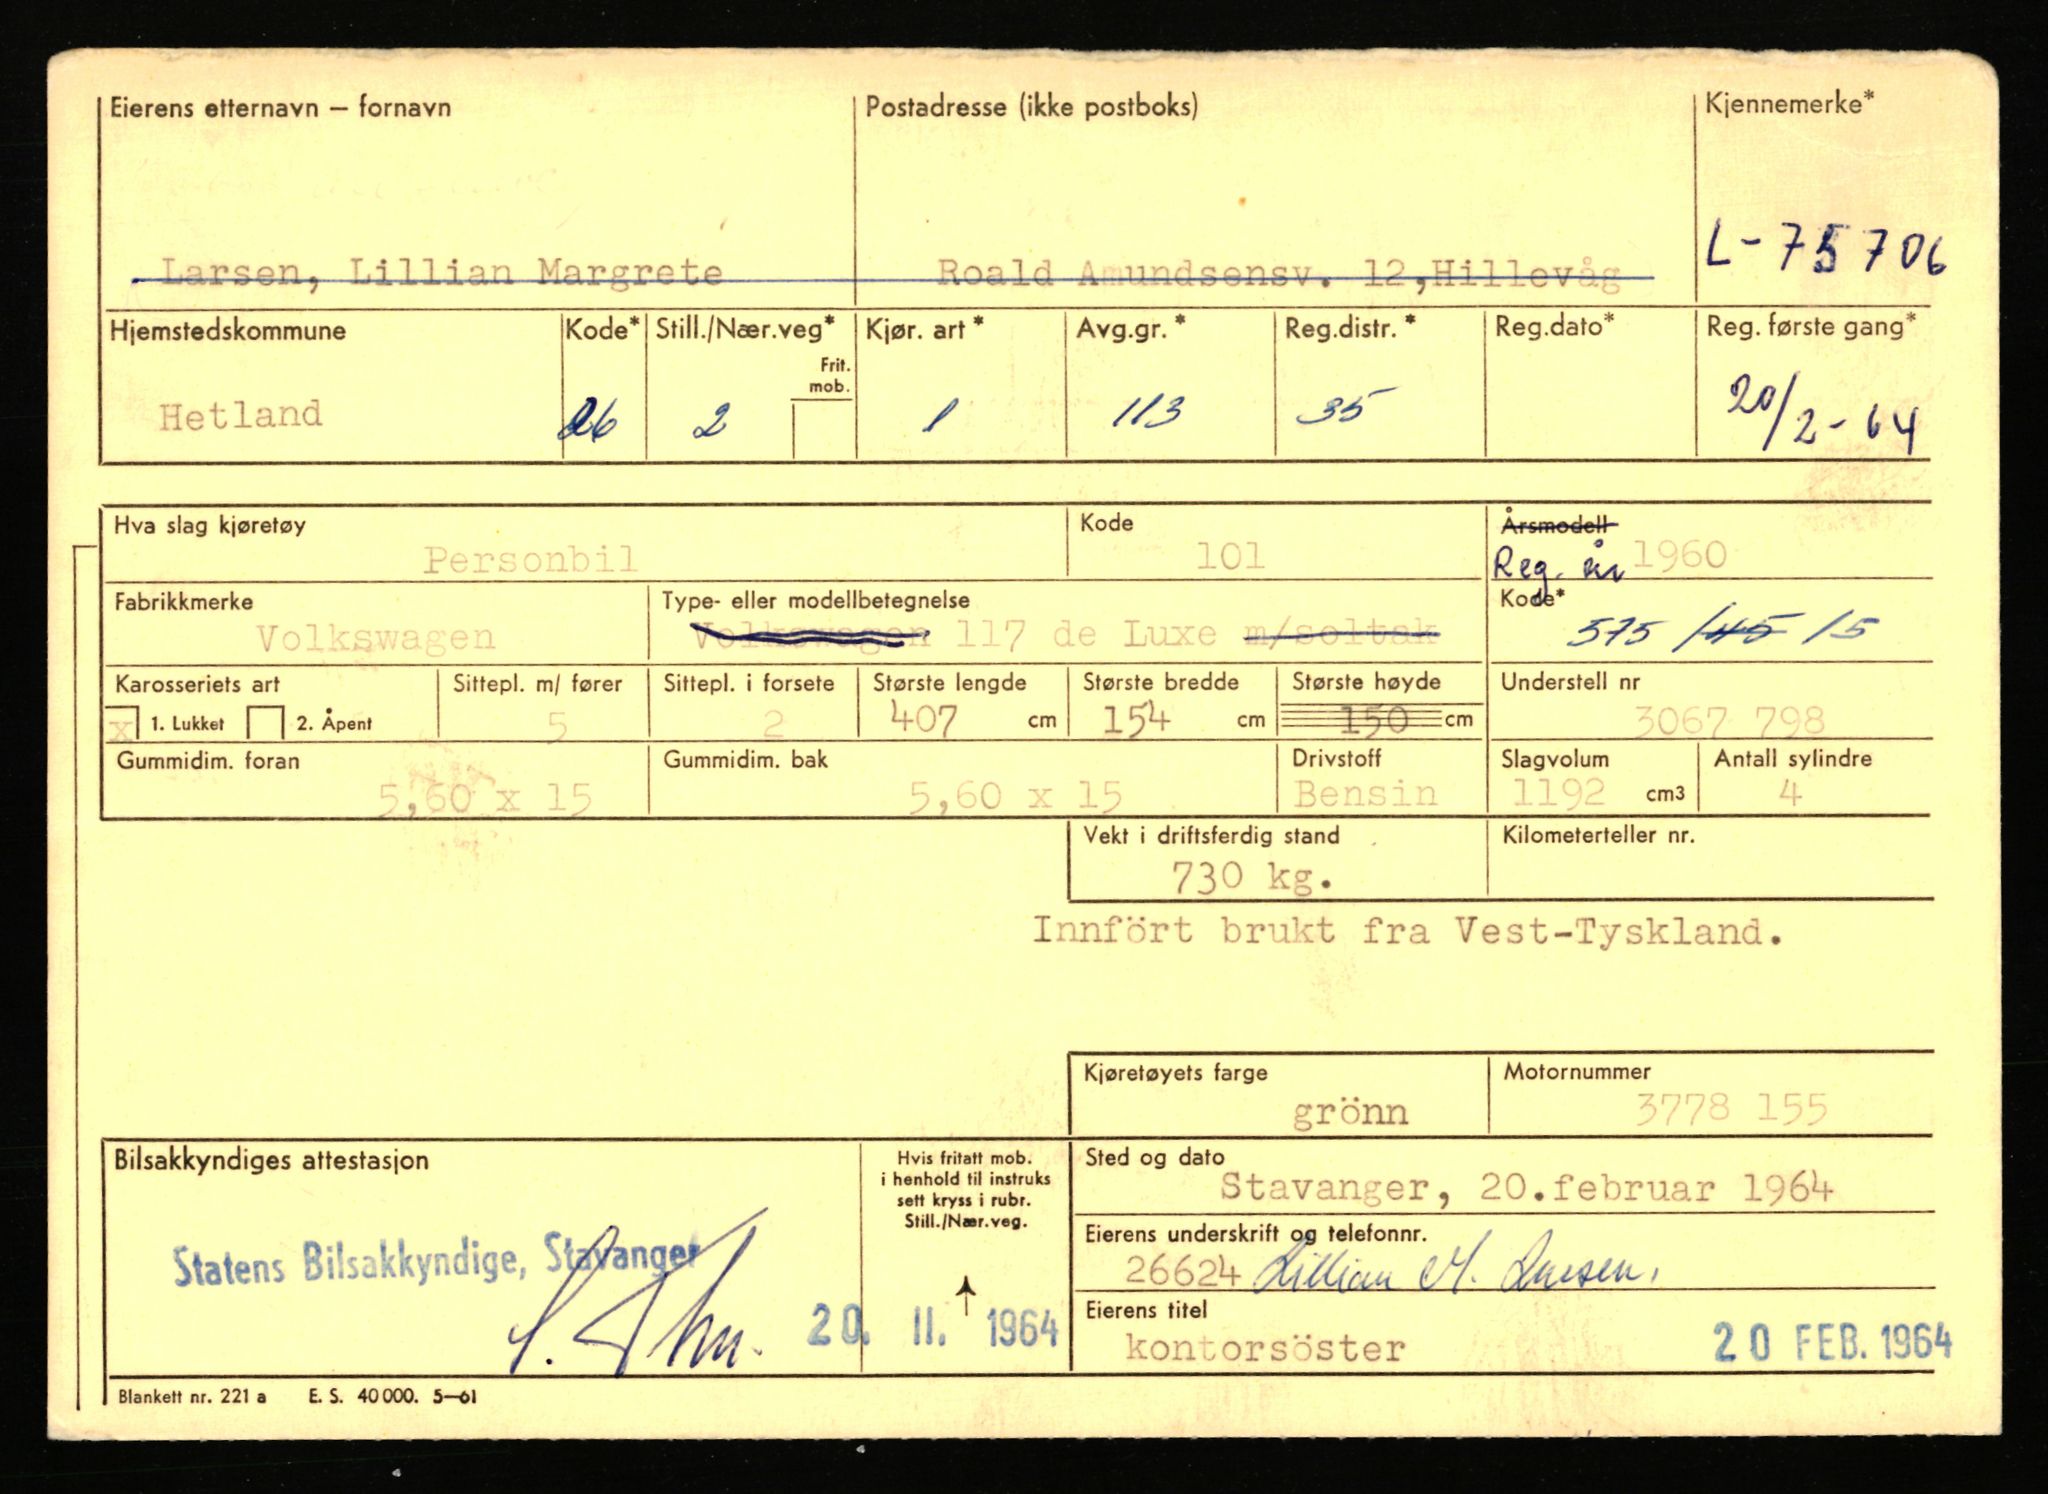 Eierens etternavn – fornavn Postadresse (ikke postboks) Kjennemerke*
Larsen, Lillian Margrete Roald Amundsensv. 12, Hillevåg L-75706
Hjemstedskommune Kode* Still./Nær.veg* Kjør. art* Avg.gr.* Reg.distr.* Reg.dato* Reg. første gang*
Frit. mob.
Hetland 26 2 1 113 35 20/2-64
Hva slag kjøretøy Kode Årsmodell
Personbil 101 Reg. år 1960
Fabrikkmerke Type- eller modellbetegnelse Kode*
Volkswagen Volkswagen 117 de Luxe m/soltak 575 /45 15
Karosseriets art Sittepl. m/ fører Sittepl. i forsete Største lengde Største bredde Største høyde Understell nr
x 1. Lukket 2. Åpent 5 2 407 cm 154 cm 150 cm 3067 798
Gummidim. foran Gummidim. bak Drivstoff Slagvolum Antall sylindre
5,60 x 15 5,60 x 15 Bensin 1192 cm3 4
Vekt i driftsferdig stand Kilometerteller nr.
730 kg.
Innfört brukt fra Vest-Tyskland.
Kjøretøyets farge Motornummer
grönn 3778 155
Bilsakkyndiges attestasjon
Hvis fritatt mob.
i henhold til instruks
sett kryss i rubr.
Still./Nær.veg.
Sted og dato
Stavanger, 20.februar 1964
Eierens underskrift og telefonnr.
Statens Bilsakkyndige, Stavanger
26624 Lillian M. Larsen.
Eierens titel
20. II. 1964
kontorsöster 20 FEB. 1964
Blankett nr. 221 a E. S. 40 000. 5–61